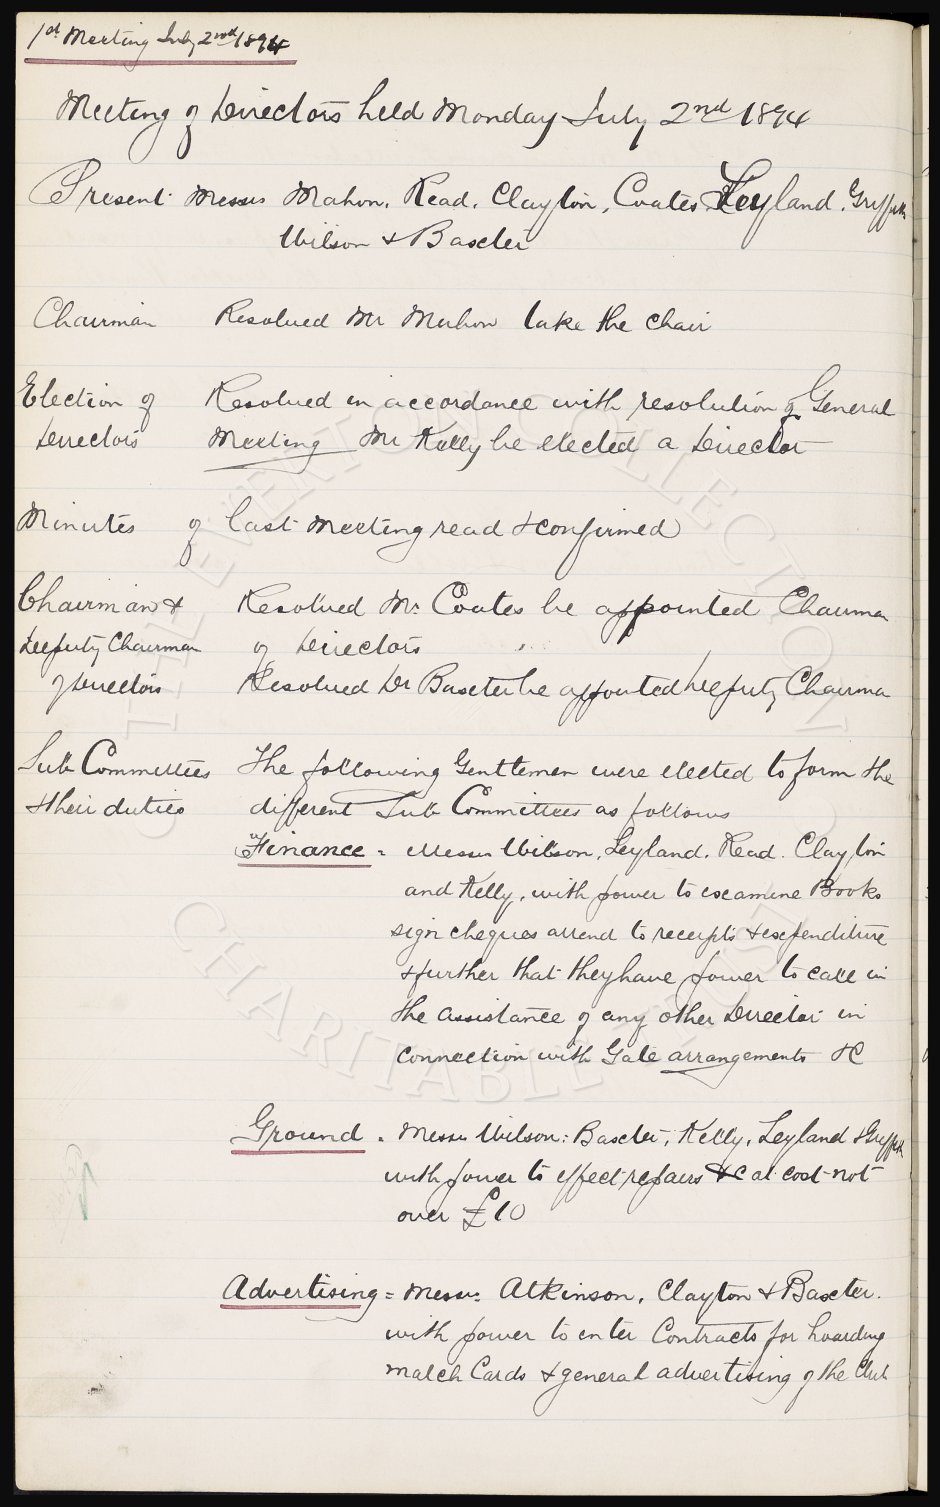 1st Meeting July 2nd 1894
Meeting of Directors held Monday July 2nd 1894
Present Messrs Mahon, Read, Clayton, Coates, Leyland, Griffiths
Wilson & Baxter
Chairman Resolved Mr Mahon take the chair
Election of Resolved in accordance with resolution of General
Directors Meeting Mr Kelly be elected a Director
Minutes of last meeting read & confirmed
Chairman & Resolved Mr Coates be appointed Chairman
Deputy Chairman of Directors
of Directors Resolved Dr Baxter be appointed Deputy Chairman
Sub Committees The following Gentlemen were elected to form the
& their duties different Sub Committees as follows
"Finance = Messrs Wilson, Leyland, Read, Clayton
and Kelly, with power to examine Books
sign cheques attend to receipts & expenditure
& further that they have power to call in
the assistance of any other Director in
connection with Gate arrangements &c
Ground . Messrs Wilson: Baxter, Kelly, Leyland & Griffiths
with power to effect repairs &c at cost not
over £10
Advertising = Messrs: Atkinson, Clayton & Baxter.
with power to enter Contracts for hoarding
match Cards & general advertising of the Club
THE EVERTON COLLECTION
CHARITABLE TRUST